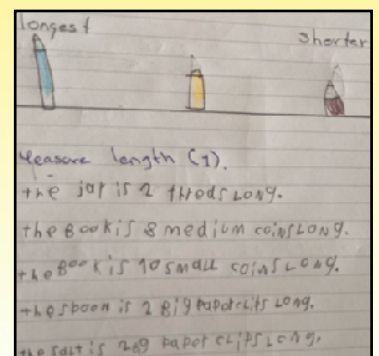 longest
shorter
Measure length (1).
the jar is 2 long.
the Book is 8 medium coins LONG.
the Book is 10 small coins LONG.
the spoon is 2 Big paparclits LONG.
the salt is big papor cLips LONG,